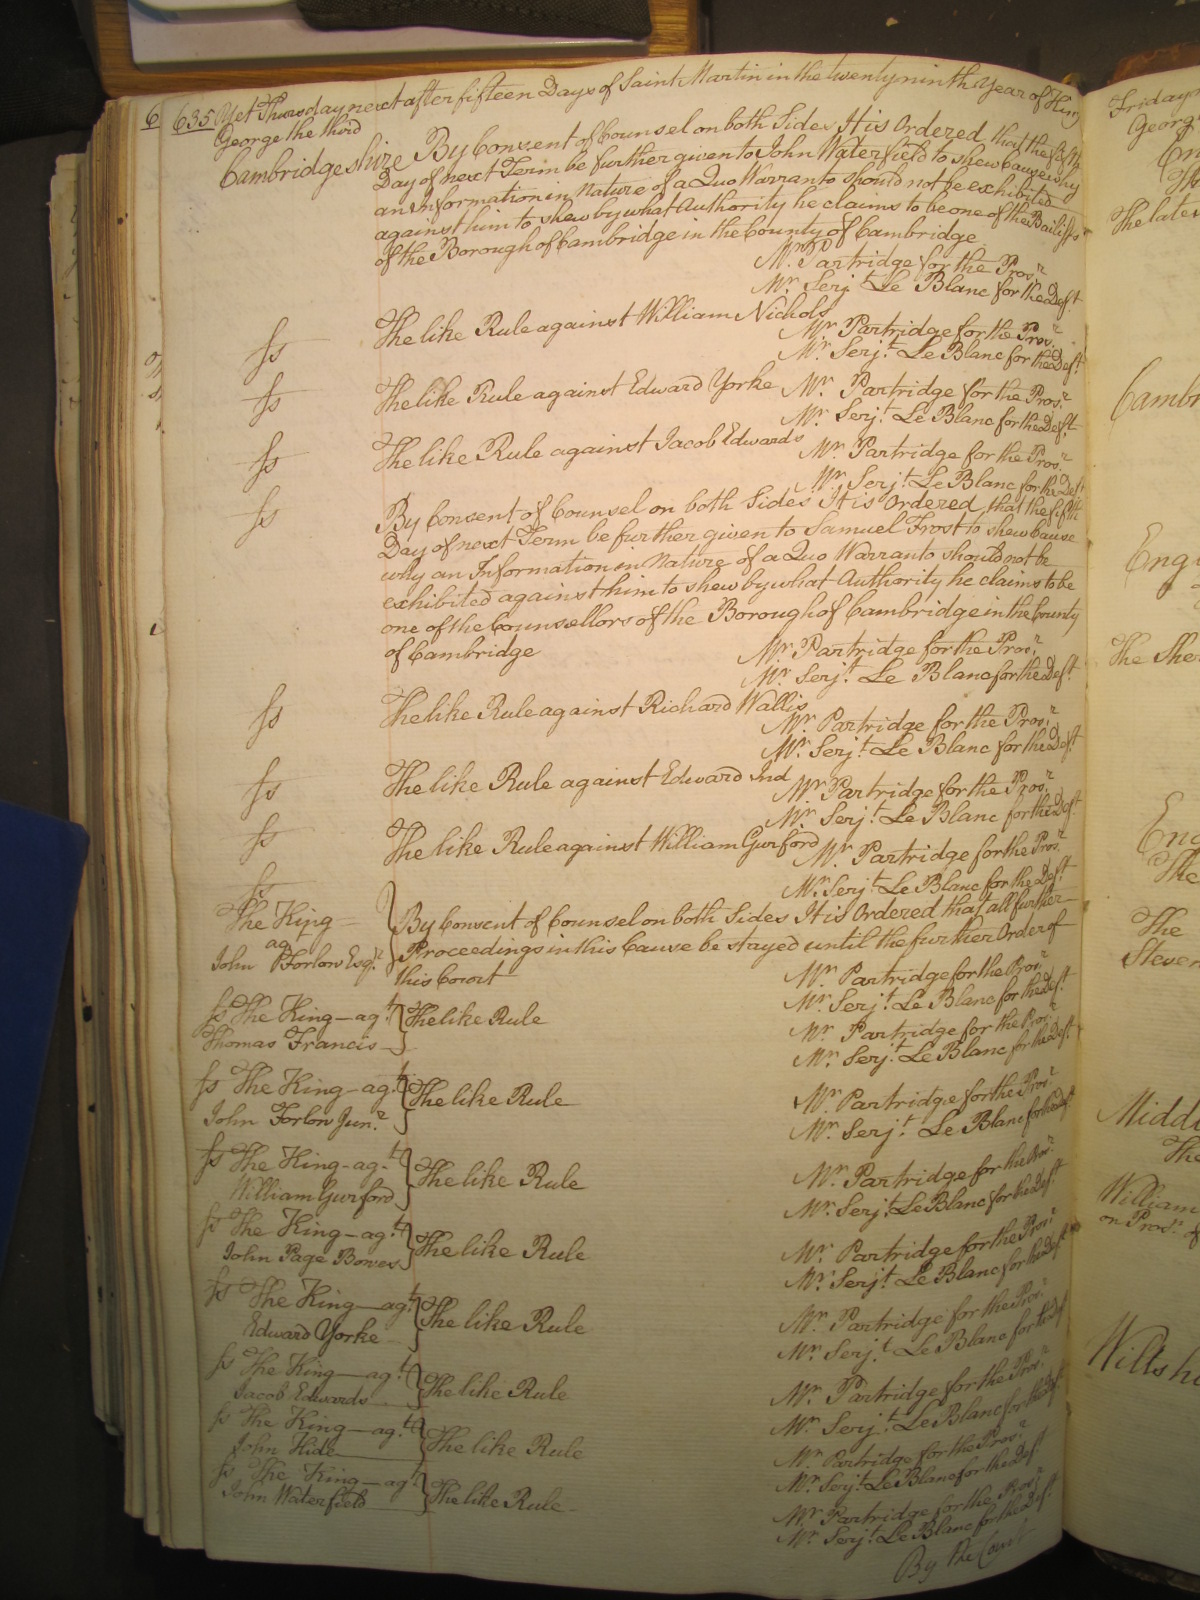 6 635 Yet Thursday next after fifteen Days of Saint Martin in the twenty ninth Year of King
George the third
Cambridgeshire By Consent of Counsel on both Sides It is Ordered that the fifth
Day of next Term be further given to John Waterfield to shew Cause why
an Information in Nature of a Quo Warranto should not be exhibited
against him to shew by what Authority he claims to be one of the Bailiffs
of the Borough of Cambridge in the County of Cambridge
Mr. Partridge for the Prosr.
Mr. Serjt. Le Blanc for the Deft.
ss The like Rule against William Nichols
Mr. Partridge for the Prosr.
Mr. Serjt. Le Blanc for the Deft.
ss The like Rule against Edward Yorke Mr. Partridge for the Prosr.
Mr. Serjt. Le Blanc for the Deft.
ss The like Rule against Jacob Edwards
Mr. Partridge for the Prosr.
Mr. Serjt. Le Blanc for the Deft.
ss By Consent of Counsel on both Sides It is Ordered that the fifth
Day of next Term be further given to Samuel Frost to shew Cause
why an Information in Nature of a Quo Warranto should not be
exhibited against him to shew by what Authority he claims to be
one of the Counsellors of the Borough of Cambridge in the County
of Cambridge
Mr. Partridge for the Prosr.
Mr. Serjt. Le Blanc for the Deft.
ss The like Rule against Richard Wallis
Mr. Partridge for the Prosr.
Mr. Serjt. Le Blanc for the Deft.
ss The like Rule against Edward Ind
Mr. Partridge for the Prosr.
Mr. Serjt. Le Blanc for the Deft.
ss The like Rule against William Gurford
Mr. Partridge for the Prosr.
Mr. Serjt. Le Blanc for the Deft.
ss
The King
agt
John Forlow Esqr.
By Consent of Counsel on both Sides It is Ordered that all further
Proceedings in this Cause be stayed until the further Order of
this Court
Mr. Partridge for the Prosr.
Mr. Serjt. Le Blanc for the Deft.
ss The King – agt. The like Rule
Thomas Francis
Mr. Partridge for the Prosr.
Mr. Serjt. Le Blanc for the Deft.
ss The King – agt. The like Rule
John Forlow Junr.
Mr. Partridge for the Prosr.
Mr. Serjt. Le Blanc for the Deft.
ss The King – agt. The like Rule
William Gurford
Mr. Partridge for the Prosr.
Mr. Serjt. Le Blanc for the Deft.
ss The King – agt. The like Rule
John Page Bowes
Mr. Partridge for the Prosr.
Mr. Serjt. Le Blanc for the Deft.
ss The King – agt. The like Rule
Edward Yorke
Mr. Partridge for the Prosr.
Mr. Serjt. Le Blanc for the Deft.
ss The King – agt. The like Rule
Jacob Edwards
Mr. Partridge for the Prosr.
Mr. Serjt. Le Blanc for the Deft.
ss The King – agt. The like Rule
John Hide
Mr. Partridge for the Prosr.
Mr. Serjt. Le Blanc for the Deft.
ss The King – agt. The like Rule
John Waterfield
Mr. Partridge for the Prosr.
Mr. Serjt. Le Blanc for the Deft.
By the Court
Friday
Georg
The late
Cambr
Engl
The Sher
The
The
Steven
Middl
The
William
on Prosn. of
Willsh